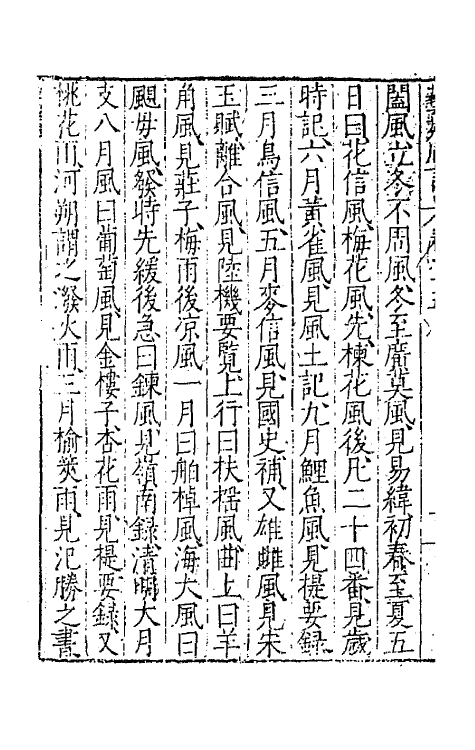 閶風立冬不周風冬至廣莫風見易緯初春至夏五
日曰花信風梅花風先楝花風後凡二十四番見歲
時記六月黃雀風見風土記九月鯉魚風見提要録
三月鳥信風五月麥信風見國史補又雄雌風見宋
玉賦離合風見陸機要覽上行曰扶榣風曲上曰羊
角風見莊子梅雨後凉風一月曰舶棹風海大風曰
颶母風發時先緩後急曰鍊風見嶺南録清明大月
支八月風曰葡萄風見金樓子杏花雨見提要録又
桃花雨河朔謂之潑火雨三月榆莢雨見氾勝之書